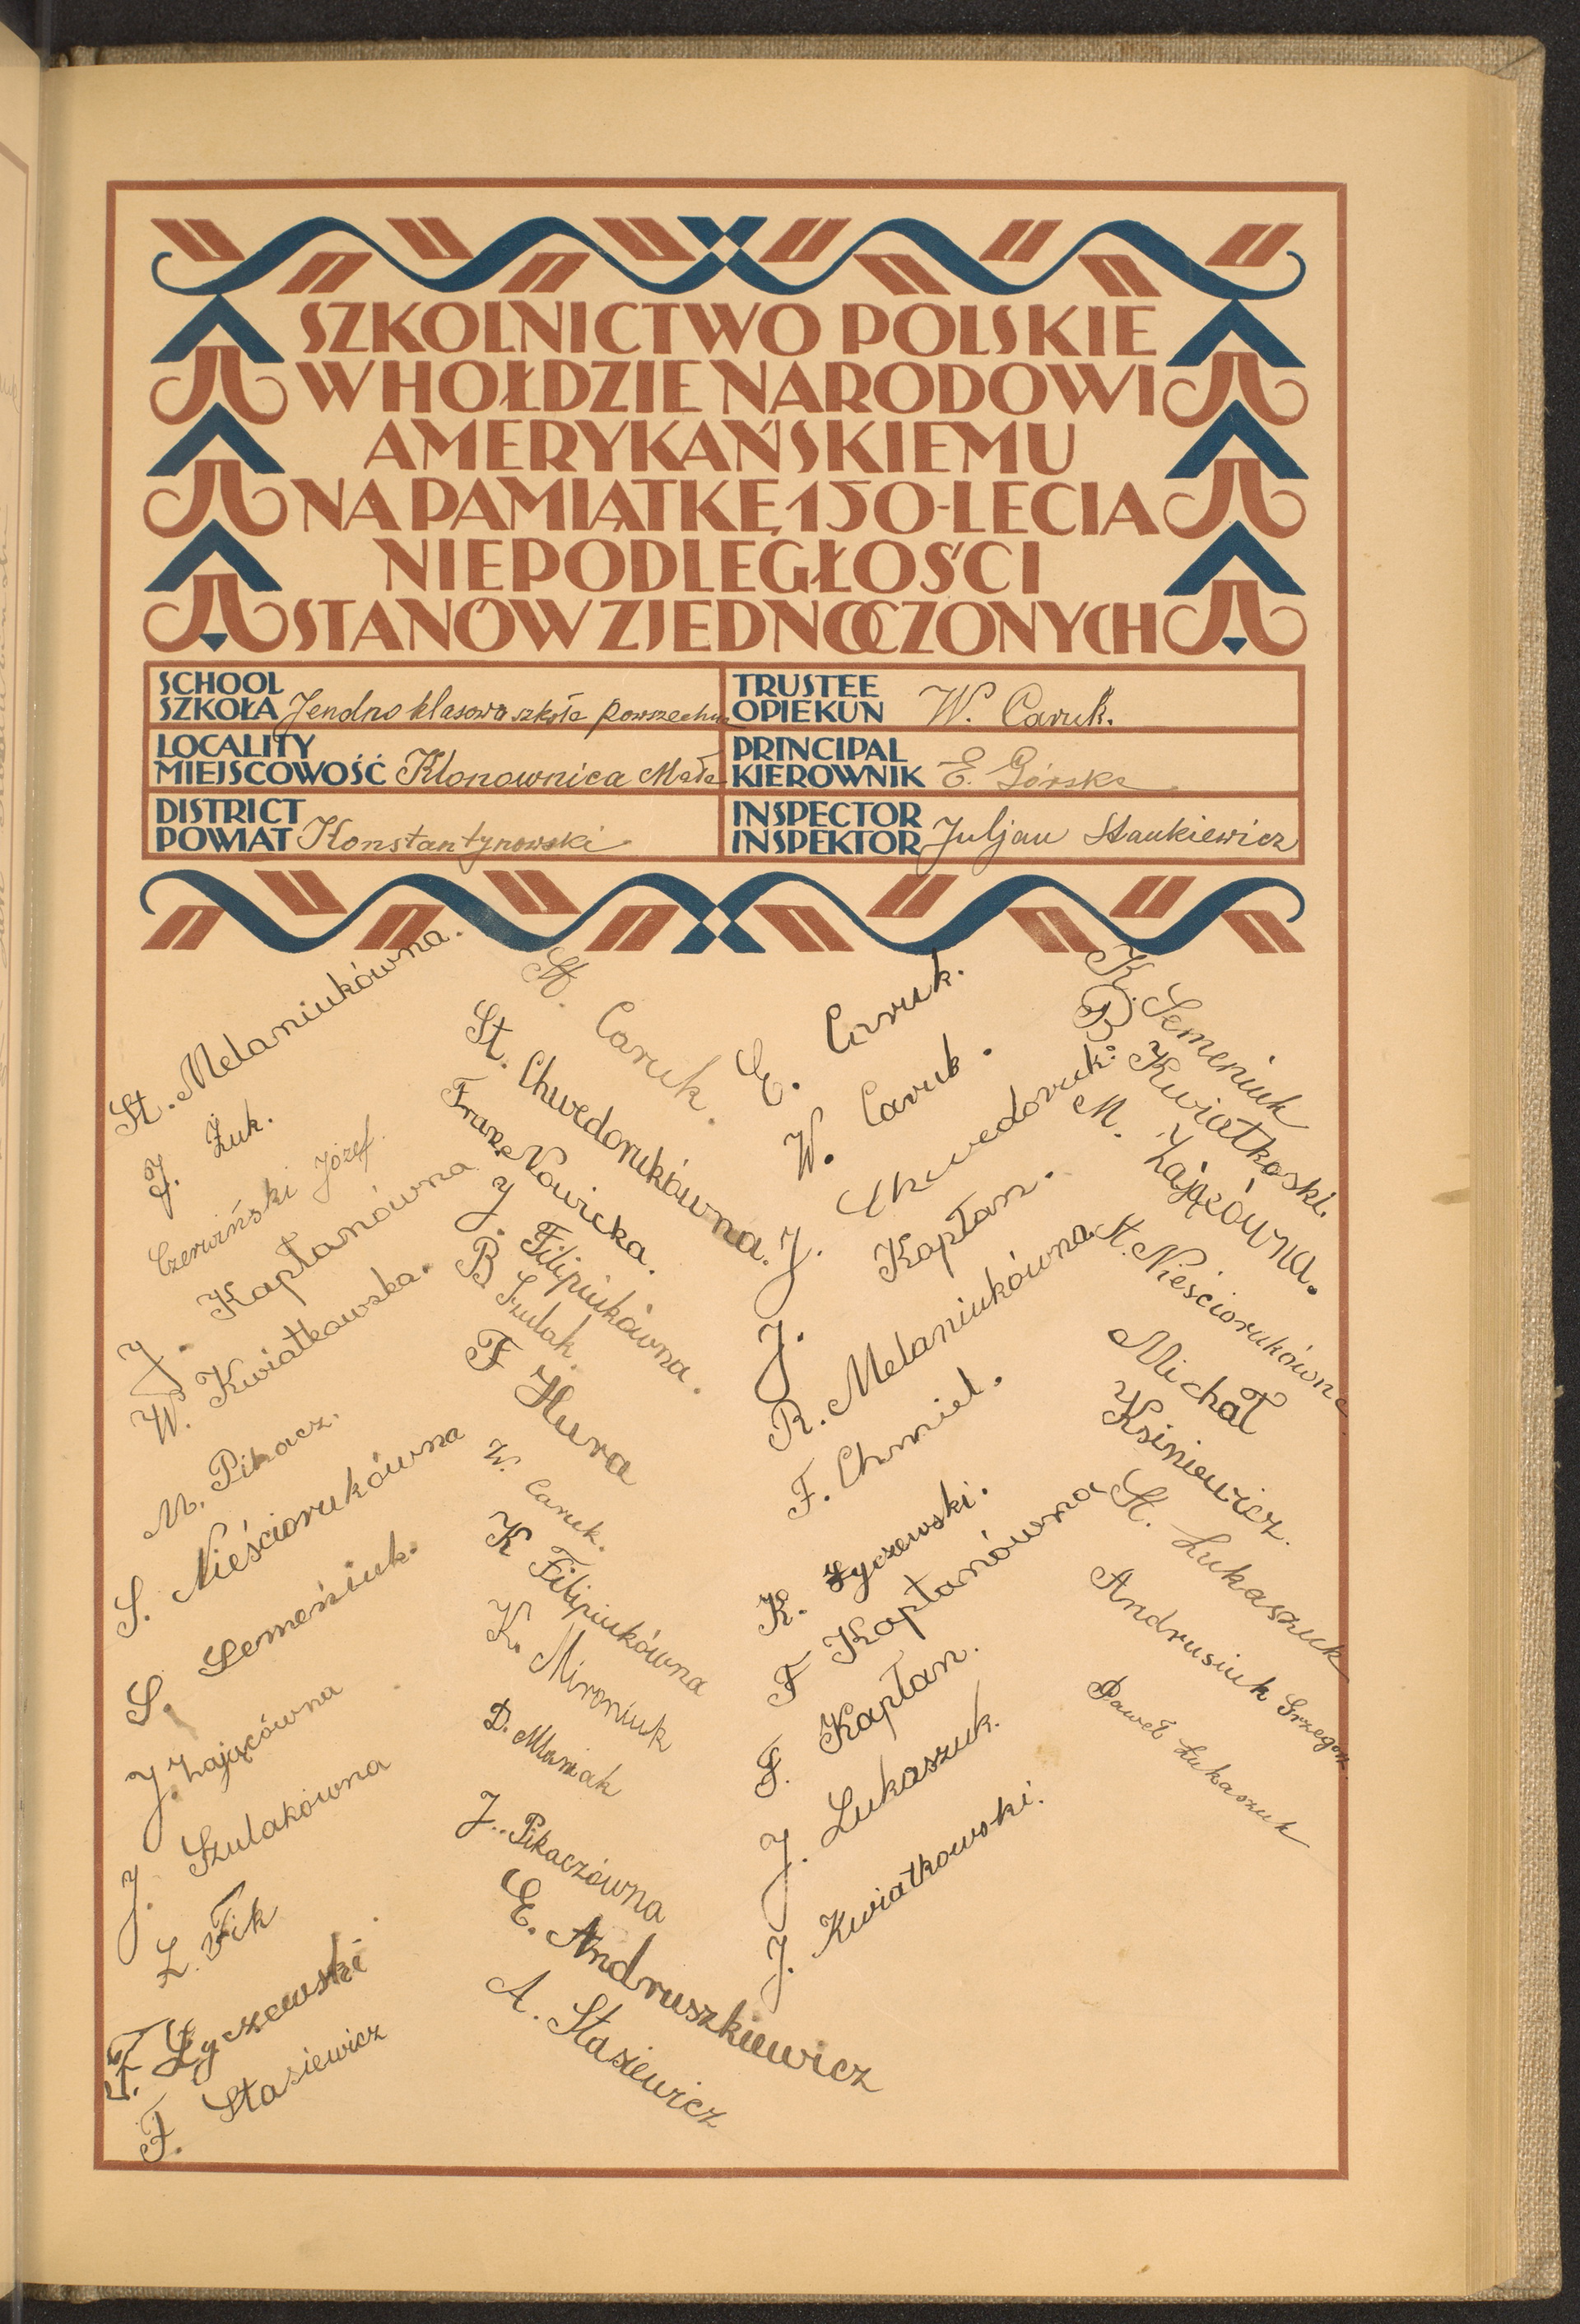 SZKOLNICTWO POLSKIE
W HOŁDZIE NARODOWI
AMERYKAŃSKIEMU
NA PAMIĄTKĘ 150-LECIA
NIEPODLEGŁOŚCI
STANÓW ZJEDNOCZONYCH
SCHOOL
SZKOŁA Jendno klasowa szkoła powszechna
TRUSTEE
OPIEKUN W. Caruk.
LOCALITY
MIEJSCOWOŚĆ Klonownica Mała
PRINCIPAL
KIEROWNIK E. Górska
DISTRICT
POWIAT Konstantynowski
INSPECTOR
INSPEKTOR Juljan Stankiewicz
St. Melaniukówna.
J. Żuk.
Czerwiński Józef.
J. Kapłanówna
W. Kwiatkowska.
M. Pikacz.
S. Nieściorukówna
S. Semeniuk.
J. Zającówna
J. Szulakówna
Z. Fik
F. Łyczewski
F. Stasiewicz
St. Caruk.
St. Chwedorukówna.
Franc Nowicka.
J. Filipiukówna.
B. Szulak.
F Hura
W. Caruk.
K Filipiukówna
K. Mironiuk
D. Maniak
J. Pikaczówna
E. Andruszkiewicz
A. Stasiewicz
Caruk.
W. Caruk.
J. Chwedoruk.
J. Kapłan.
R. Melaniukówna
F. Chmiel.
K. Łyczewski.
F Kapłanówna
F. Kapłan.
J. Łukaszuk.
J. Kwiatkowski.
K. Semeniuk
B. Kwiatkoski.
M. Zającówna.
St. Nieściorukówna
Michał
Ksiniewicz.
St. Łukaszuk
Andrusiuk Grzegorz
Paweł Łukaszuk